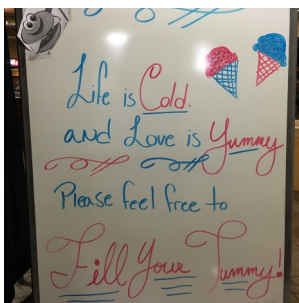 Life is Cold.
and Love is Yummy
Please feel free to
Fill Your Tummy!